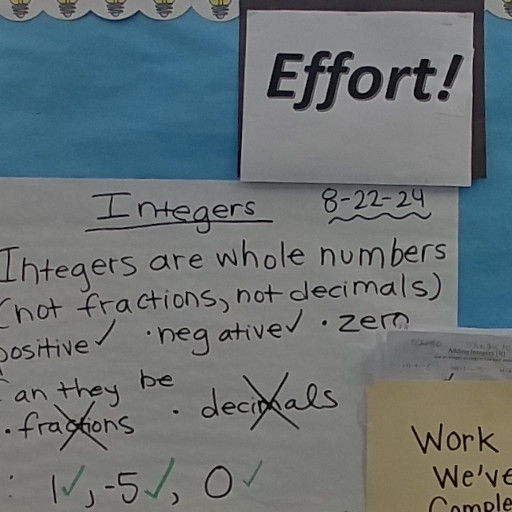 Effort!
Integers 8-22-24
Integers are whole numbers
(not fractions, not decimals)
positive ✓ · negative ✓ · zero
Can they be
· fractions · decimals
: 1✓, -5✓, 0✓
Adding Integers
Work
We've
Comple